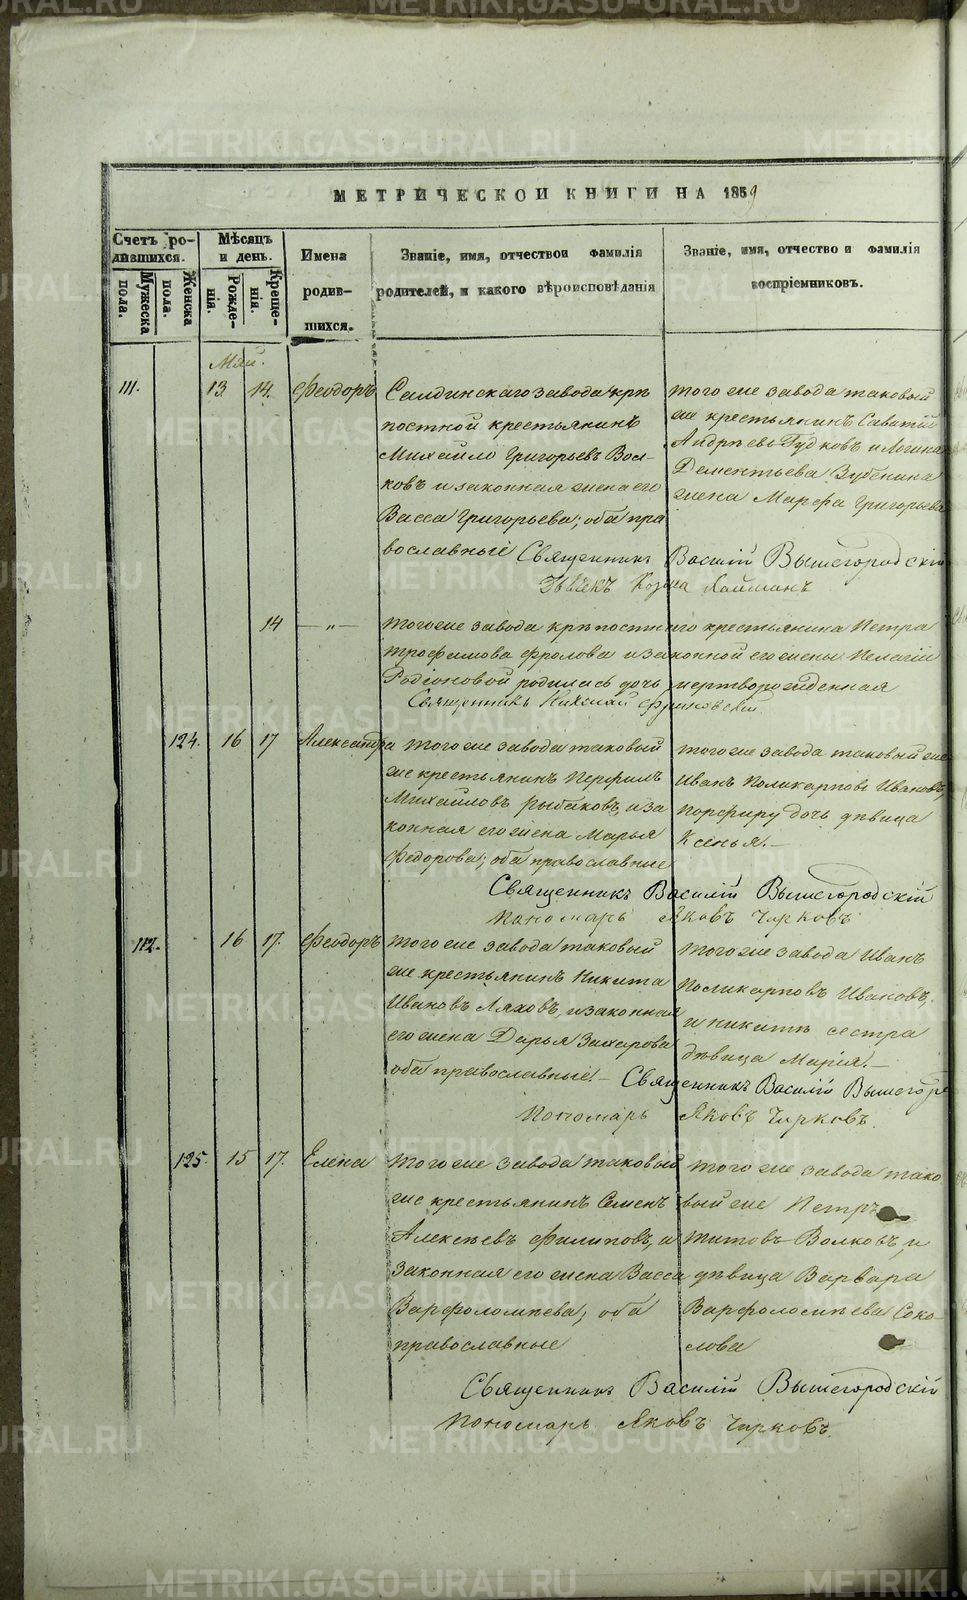 МЕТРИЧЕСКОЙ КНИГИ НА 1859
Счетъ ро-
дившихся.
Мужеска
пола.
Женска
пола.
Мѣсяцъ
и день.
Рожде-
нія.
Креще-
нія.
Имена
родив-
шихся.
Званіе, имя, отчество и фамилія
родителей, и какого вѣроисповѣданія
Званіе, имя, отчество и фамилія
воспріемниковъ.
Май.
111. 13 14. Феодоръ
Салдинскаго завода крѣ
постной крестьянинъ
Михайло Григорьевъ Вол-
ковъ и законная жена его
Васса Григорьева; оба пра
вославные
того же завода таковый
же крестьянинъ Саватій
Андрѣевъ Гудковъ и Логина
Дементьева Зубенина
жена Марфа Григорьева
Священникъ Василій Вышегородскій
Дьякъ Козма
14 — „ — тогоже завода крѣпостнаго крестьянина Петра
Трофимова Фролова и законной его жены Пелагіи
Родіоновой родилась дочь мертворожденная
Священникъ Николай
124. 16 17 Александра
того же завода таковый
же крестьянинъ Перфилъ
Михайловъ Рыбаковъ, и за
конная его жена Марья
Федорова; оба православные
того же завода таковый же
Иванъ Поликарповъ Ивановъ,
Порфиру дочь дѣвица
Ксенья.—
Священникъ Василій Вышегородскій
Пономарь Яковъ Чирковъ
112. 16 17. Феодоръ
того же завода таковый
же крестьянинъ Никита
Ивановъ Ляховъ, и законная
его жена Дарья Захарова
оба православные.—
того же завода Иванъ
Поликарповъ Ивановъ,
и никитѣ сестра
дѣвица Марія.—
Священникъ Василій Вышегор
Пономарь Яковъ Чирковъ.
125. 15 17. Елена
того же завода таковый
же крестьянинъ Семенъ
Алексѣевъ Филиповъ, и
законная его жена Васса
Варфоломѣева; оба
православные
того же завода тако
вый же Петръ
Титовъ Волковъ, и
дѣвица Варвара
Варфоломѣева Соко-
лова
Священникъ Василій Вышегородскій
Пономарь Яковъ Чирковъ.
METRIKI.GASO-URAL.RU